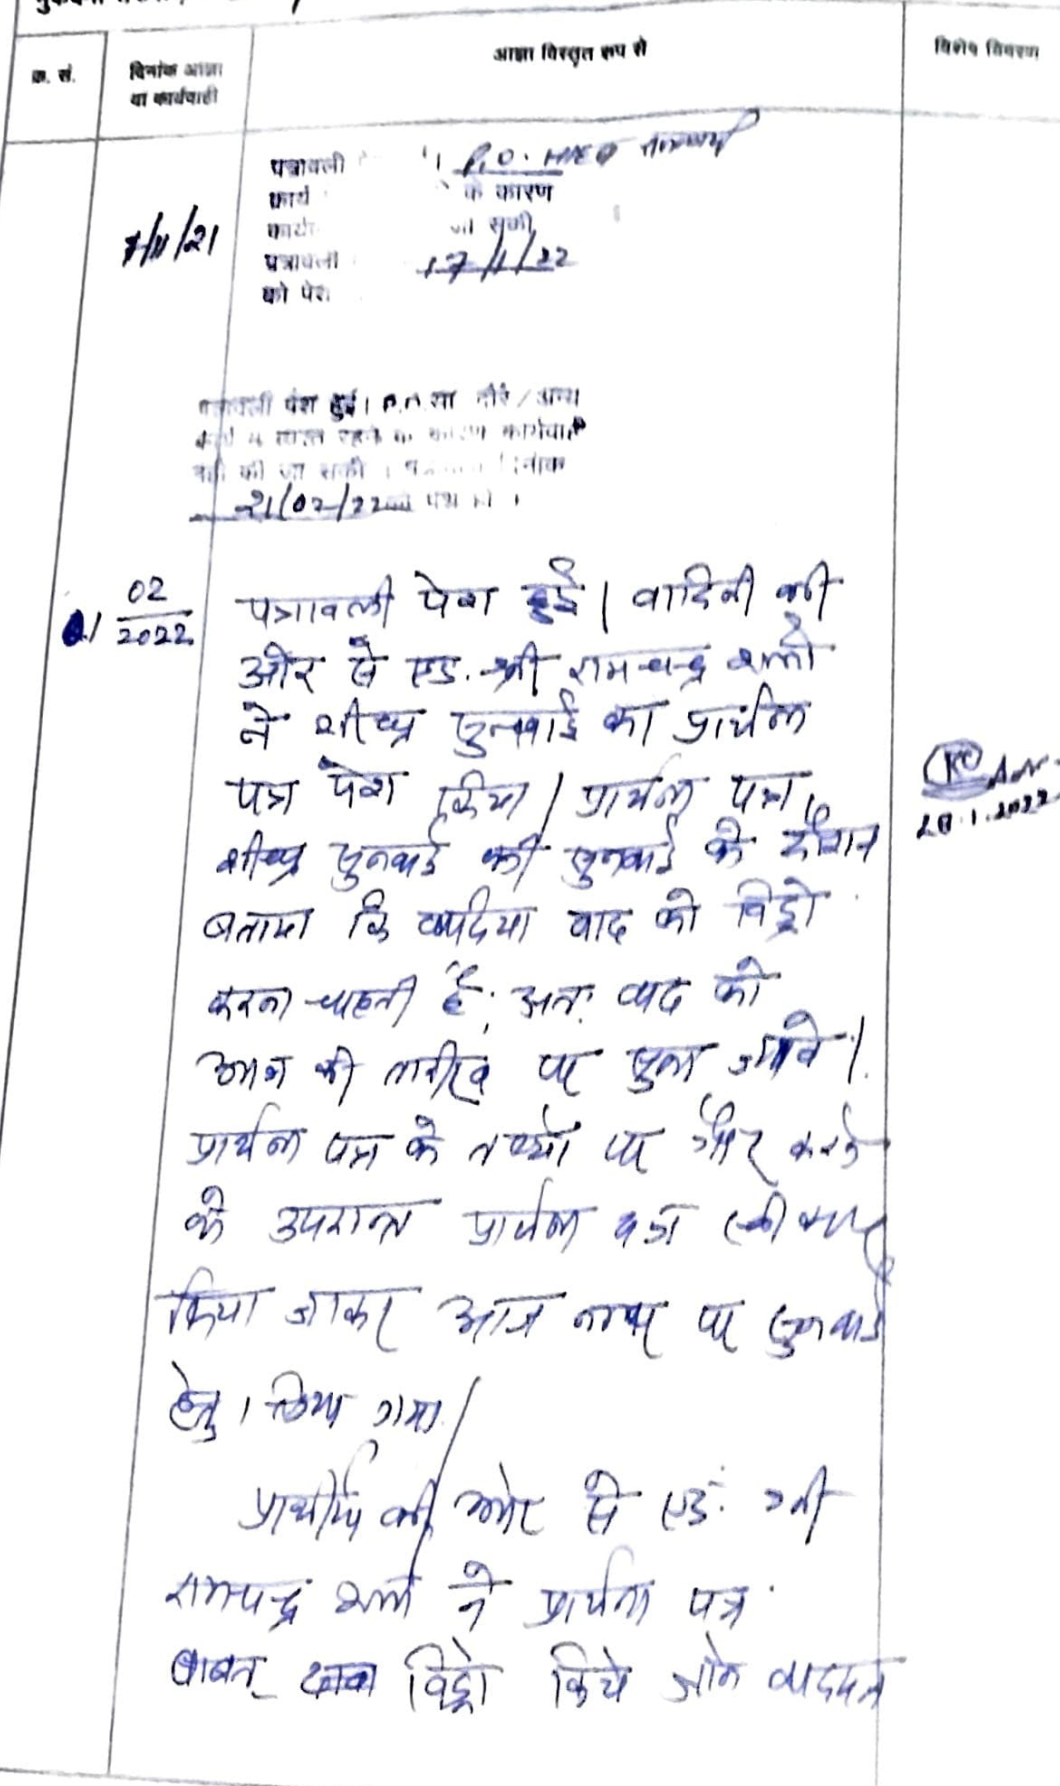 क्र. सं.
दिनांक आज्ञा
या कार्यवाही
आज्ञा विस्तृत रूप से
विशेष विवरण
पत्रावली P.O.
कार्य के कारण
सकी
7/11/21
पत्रावली 17/1/22
को पेश
पत्रावली पेश हुई। दौरे/अन्य
रहने के कारण कार्यवाही
नही की जा सकी। दिनांक
21/02/22 को पेश हो।
02
2022
पत्रावली पेश हुई। वादिनी की
ओर से एड. श्री रामचन्द्र शर्मा
ने शीघ्र सुनवाई का प्रार्थना
पत्र पेश किया। प्रार्थना पत्र
शीघ्र सुनवाई की सुनवाई के दौरान
बताया कि वादिया वाद को विड्रो
करना चाहती है, अतः वाद को
आज की तारीख पर सुना जावे।
प्रार्थना पत्र के तथ्यों पर गौर करने
के उपरान्त प्रार्थना पत्र स्वीकार
किया जाकर आज पर सुनवाई
हेतु लिया गया।
की ओर से एड. श्री
रामचन्द्र शर्मा ने प्रार्थना पत्र
बाबत् विड्रो किये जाने
28.1.2022